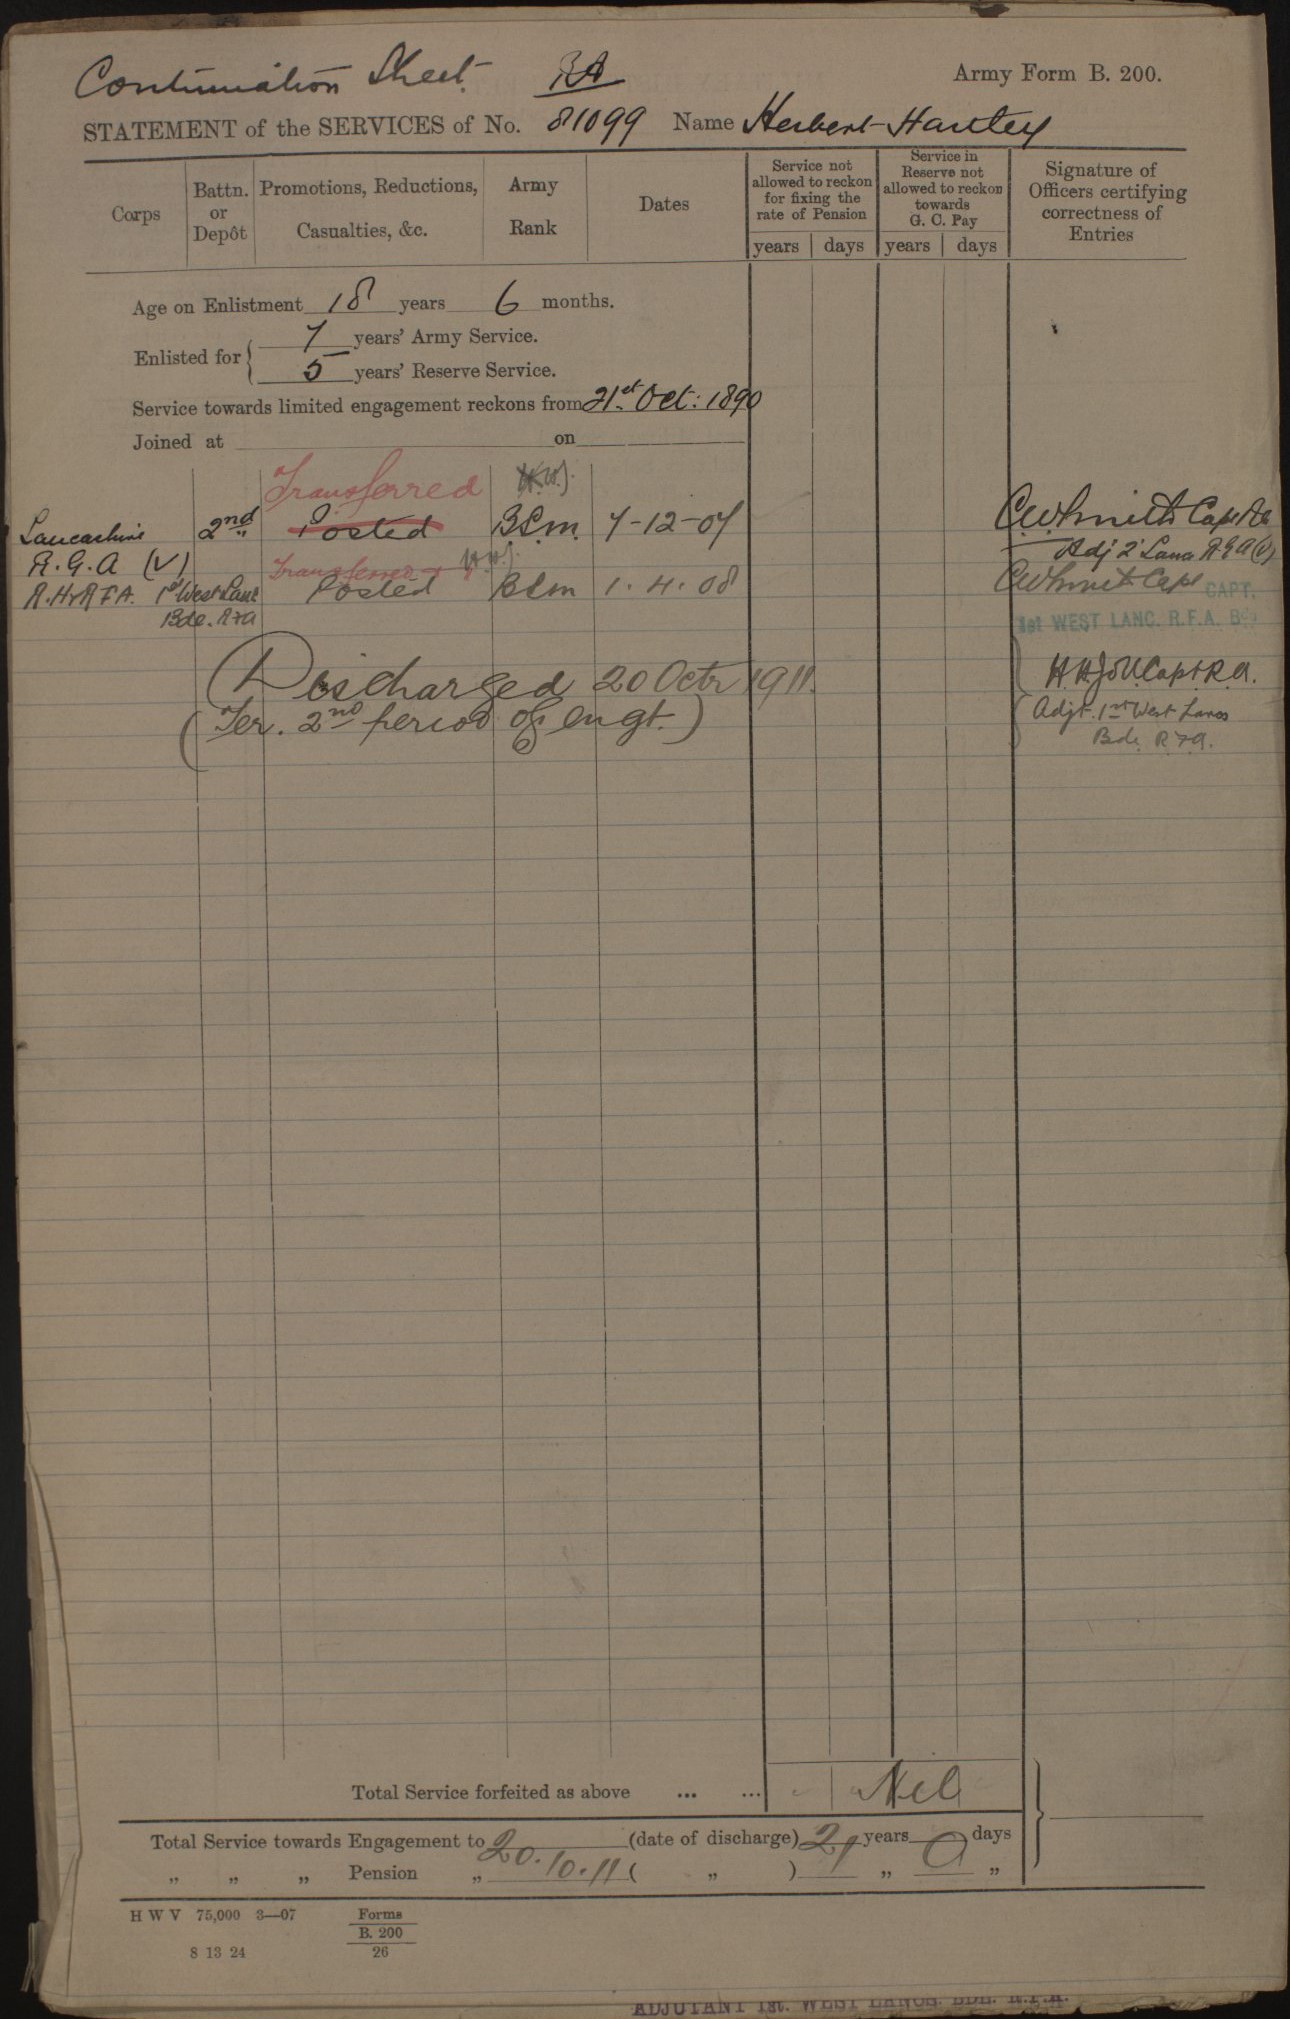 Continuation Sheet. RA
Army Form B. 200.
STATEMENT of the SERVICES of No. 81099 Name Herbert Hartley
Corps
Battn. or Depôt
Promotions, Reductions, Casualties, &c.
Army Rank
Dates
Service not allowed to reckon for fixing the rate of Pension
years days
Service in Reserve not allowed to reckon towards G. C. Pay
years days
Signature of Officers certifying correctness of Entries
Age on Enlistment 18 years 6 months.
Enlisted for
7 years' Army Service.
5 years' Reserve Service.
Service towards limited engagement reckons from 21st Oct: 1890
Joined at on
Transferred
Lancashire 2nd Posted B.S.m. 7-12-07 CWSmith Capt RA
R.G.A (V) Adj 2 Lanc R.G.A (V)
Transferred +
R.H & R F A. 1st West Lanc Posted BSm 1.4.08 CWSmith Capt CAPT.
Bde. RFA
1st WEST LANC. R.F.A. Bde
Discharged 20 Octr 1911. Capt R.A.
(Ter. 2nd period of engt.) Adjt. 1st West Lancs
Bde. RFA.
Total Service forfeited as above ... ... Nil
Total Service towards Engagement to 20.10.11 (date of discharge) 21 years 0 days
„ „ „ Pension „ ( „ ) „ „
H W V 75,000 3—07
Forms
B. 200
26
8 13 24
ADJUTANT 1st. WEST LANCS. BDE. R.F.A.